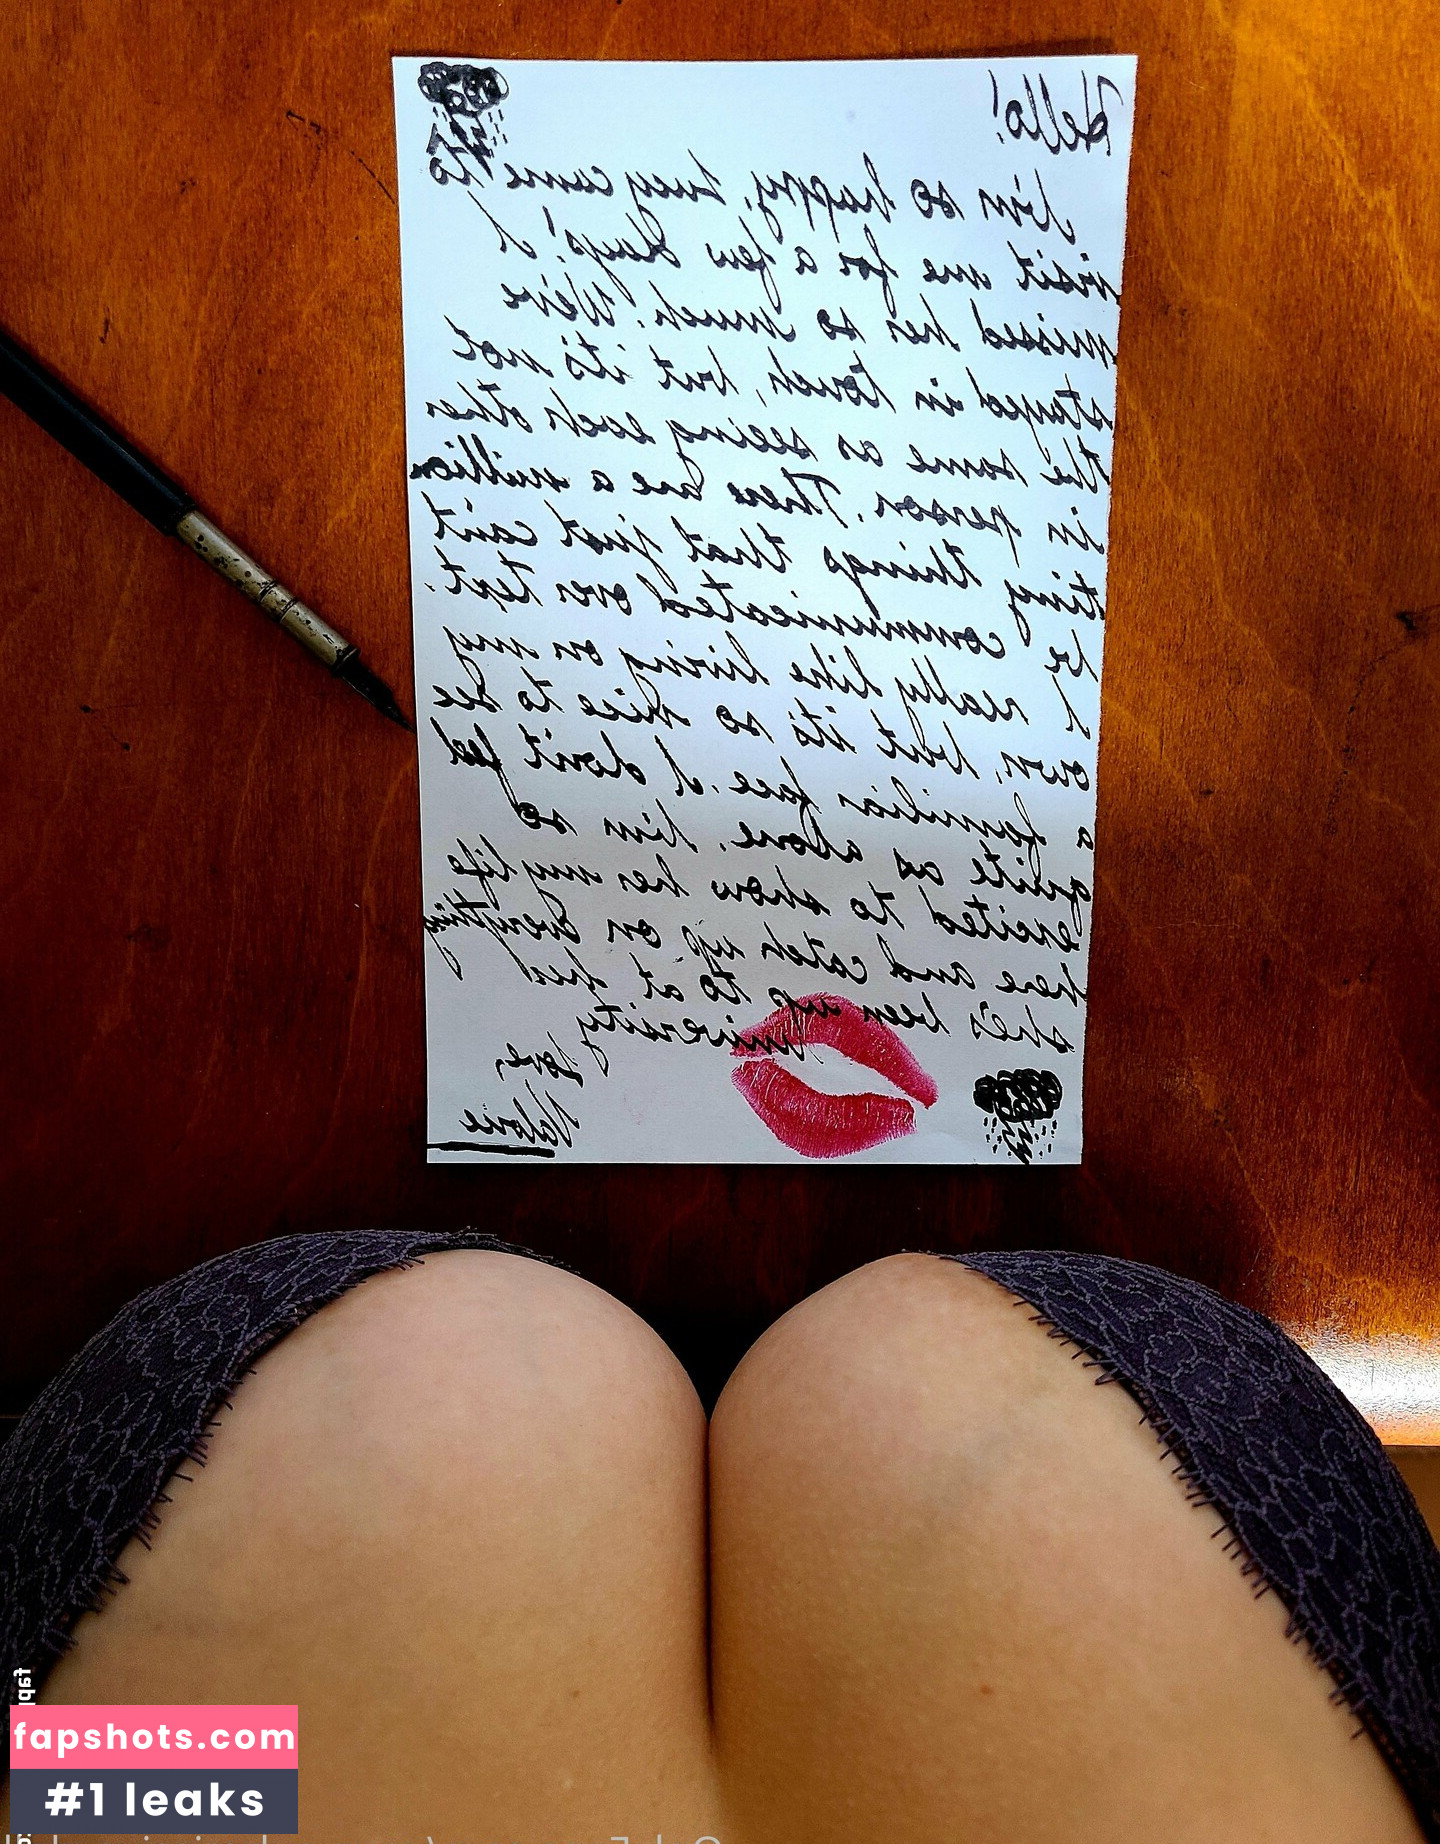 Hello!
I'm so happy, Lucy came to
visit me for a few days! I
missed her so much! We've
stayed in touch, but it's not
the same as seeing each other
in person. There are a million
tiny things that just can't
be communicated over text.
I really like living on my
own, but it's so nice to see
a familiar face. I don't feel
quite as alone. I'm so
excited to show her my life
here and catch up on everything
she's been up to at her
University
Love,
Valorie
fapshots.com
#1 leaks